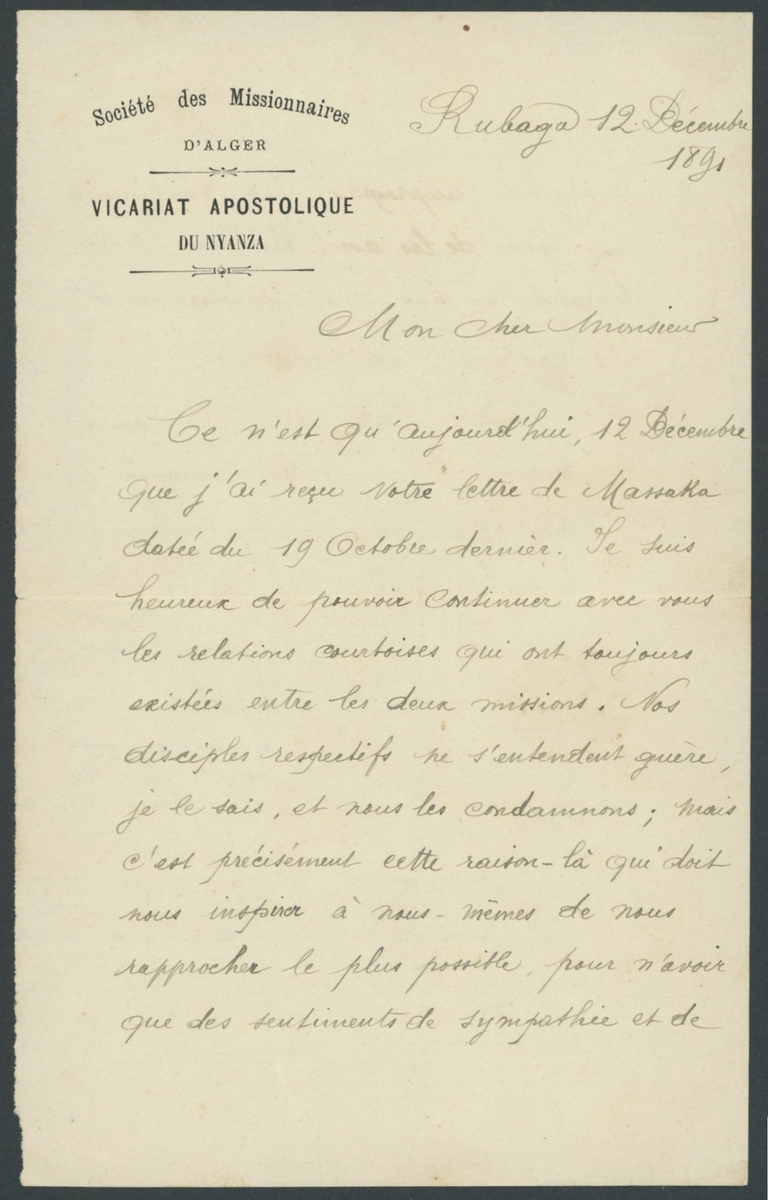 Société des Missionnaires
D'ALGER
VICARIAT APOSTOLIQUE
DU NYANZA
Rubaga 12 Décembre
1891
Mon cher Monsieur
Ce n'est qu'aujourd'hui, 12 Décembre
que j'ai reçu votre lettre de Massaka
datée du 19 Octobre dernièr. Je suis
heureux de pouvoir continuer avec vous
les relations courtoises qui ont toujours
existées entre les deux missions. Nos
disciples respectifs ne s'entendent guère,
je le sais, et nous les condamnons ; mais
c'est précisément cette raison-là qui doit
nous inspirer à nous-mêmes de nous
rapprocher le plus possible, pour n'avoir
que des sentiments de sympathie et de